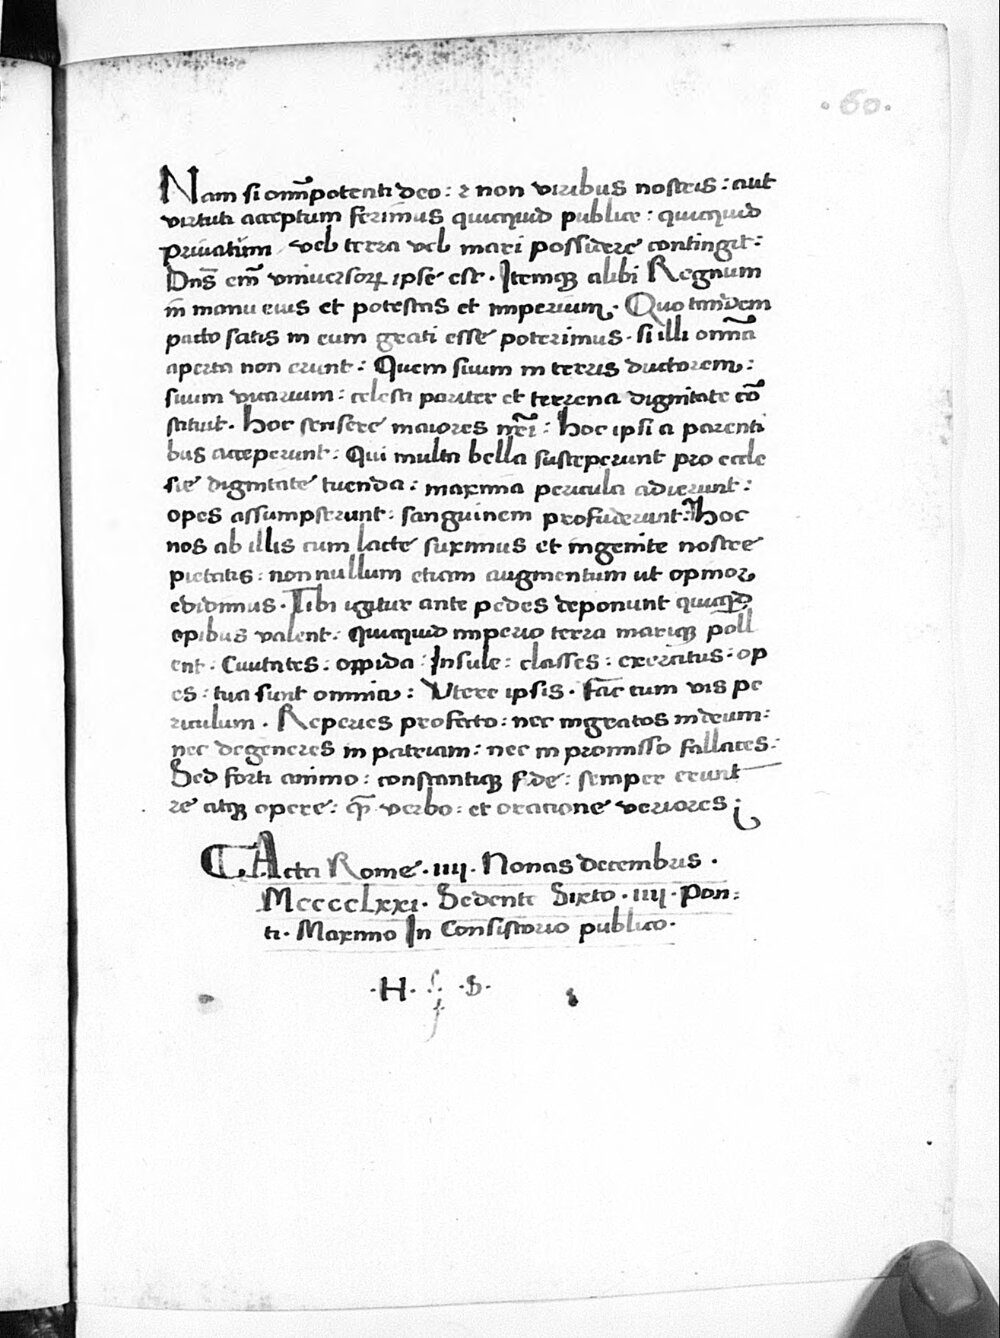 .60.
Nam si om̅potenti deo : z non viribus nostris : aut
virtuti acceptum ferimus quicquid publice : quicquid
privatim vel terra vel mari possidere contingit :
Dn̅s em̅ vniuersoꝝ ipse est . Itemqꝫ alibi Regnum
in manu eius et potestas et imperium . Quo tandem
pacto satis in eum grati esse poterimus . si illi omn̅a
aperta non erunt : Quem suum in terris ductorem :
suum vicarium : celesti pariter et terrena dignitate co̅
stituit . Hoc sensere maiores nr̅i : hoc ipsi a parenti
bus acceperunt : Qui multa bella susceperunt pro eccle
sie dignitate tuenda : maxima pericula adierunt :
opes assumpserunt : sanguinem profuderunt : Hoc
nos ab illis cum lacte suximus et ingenite nostre
pietatis : non nullum etiam augmentum ut opinor
edidimus . Tibi igitur ante pedes deponunt quicq̅d
opibus valent : quicquid imperio terra mariqꝫ poll
ent : Ciuitates : oppida : Insule : classes : exercitus : op
es : tua sunt omnia : Vtere ipsis . Fac tum vis pe
riculum . Reperies profecto : nec ingratos in deum :
nec degeneres in patriam : nec in promisso fallaces :
Sed forti animo : constantiqꝫ fide : semper erunt
re atqꝫ opere : qꝫ̅ verbo : et oratione veriores ;
Acta Rome . iiii . Nonas decembris .
MccccLxxi . Sedente Sixto . iiii . Pon:
ti . Maximo In Consistorio publico .
. H . S .